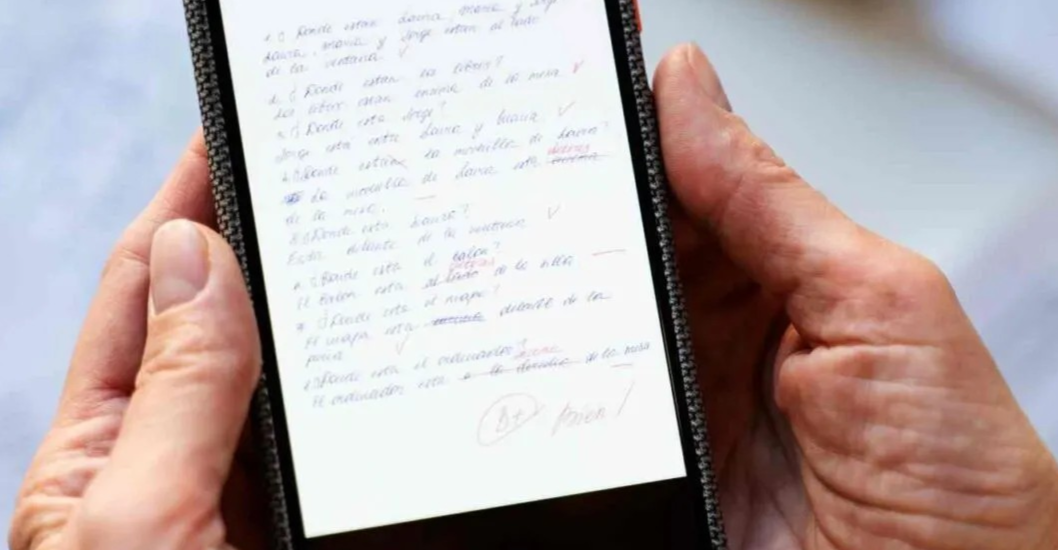 1. ¿Donde estan Laura, Maria y Jorge
Laura, Maria y Jorge estan al lado
de la ventana ✓
2. ¿Donde estan los libros?
Los libros estan encima de la mesa ✓
3. ¿Donde esta Jorge?
Jorge esta entre Laura y ✓
4. ¿Donde la mochila de Laura?
La mochila de Laura esta detras
de la mesa. —
5. ¿Donde esta Laura?
Esta delante de la ventana ✓
¿Donde esta el balon?
El Balon esta al lado detras de la silla —
7. ¿Donde esta el mapa?
El mapa esta encima delante de la
✓
¿Donde esta el ordenador? encima
El ordenador esta de la mesa —
B+ Bien!